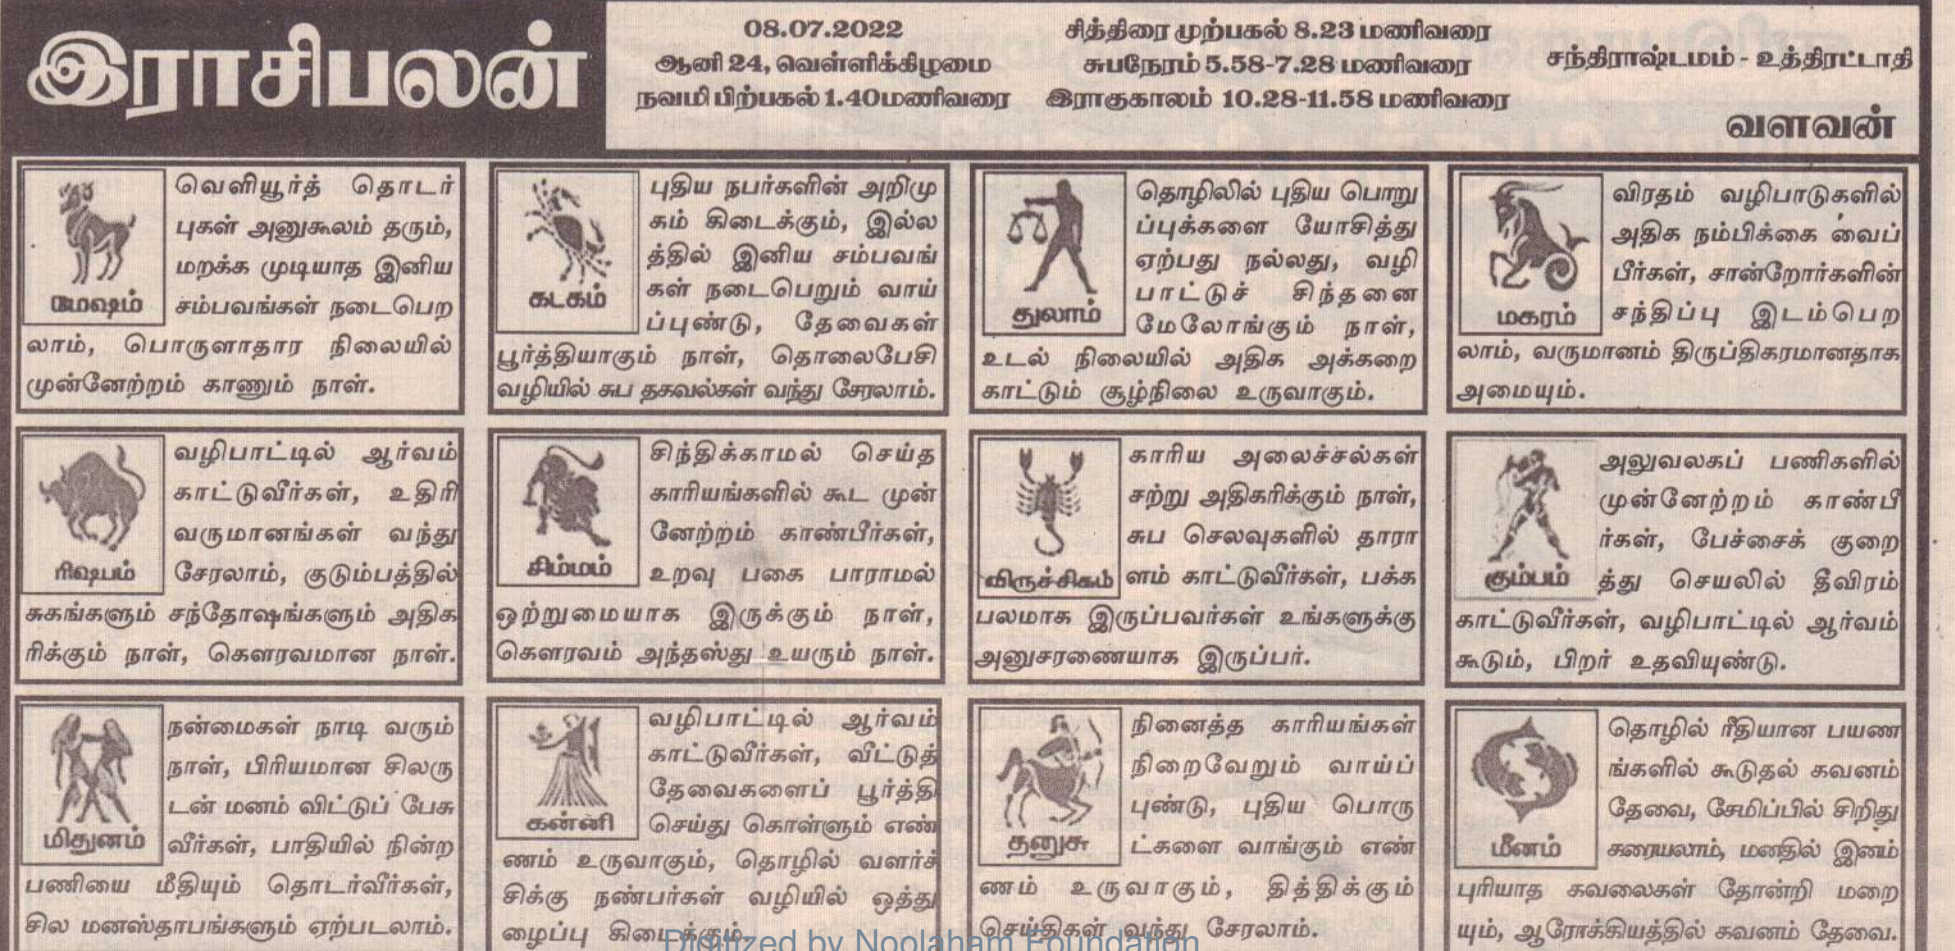 இராசிபலன்
08.07.2022
ஆனி 24, வெள்ளிக்கிழமை
நவமி பிற்பகல் 1.40மணிவரை
சித்திரை முற்பகல் 8.23 மணிவரை
சுபநேரம் 5.58-7.28 மணிவரை
இராகுகாலம் 10.28-11.58 மணிவரை
சந்திராஷ்டமம் - உத்திரட்டாதி
வளவன்
மேஷம்
வெளியூர்த் தொடர்
புகள் அனுகூலம் தரும்,
மறக்க முடியாத இனிய
சம்பவங்கள் நடைபெற
லாம், பொருளாதார நிலையில்
முன்னேற்றம் காணும் நாள்.
ரிஷபம்
வழிபாட்டில் ஆர்வம்
காட்டுவீர்கள், உதிரி
வருமானங்கள் வந்து
சேரலாம், குடும்பத்தில்
சுகங்களும் சந்தோஷங்களும் அதிக
ரிக்கும் நாள், கௌரவமான நாள்.
மிதுனம்
நன்மைகள் நாடி வரும்
நாள், பிரியமான சிலரு
டன் மனம் விட்டுப் பேசு
வீர்கள், பாதியில் நின்ற
பணியை மீதியும் தொடர்வீர்கள்,
சில மனஸ்தாபங்களும் ஏற்படலாம்.
கடகம்
புதிய நபர்களின் அறிமு
கம் கிடைக்கும், இல்ல
த்தில் இனிய சம்பவங்
கள் நடைபெறும் வாய்
ப்புண்டு, தேவைகள்
பூர்த்தியாகும் நாள், தொலைபேசி
வழியில் சுப தகவல்கள் வந்து சேரலாம்.
சிம்மம்
சிந்திக்காமல் செய்த
காரியங்களில் கூட முன்
னேற்றம் காண்பீர்கள்,
உறவு பகை பாராமல்
ஒற்றுமையாக இருக்கும் நாள்,
கௌரவம் அந்தஸ்து உயரும் நாள்.
கன்னி
வழிபாட்டில் ஆர்வம்
காட்டுவீர்கள், வீட்டுத்
தேவைகளைப் பூர்த்தி
செய்து கொள்ளும் எண்
ணம் உருவாகும், தொழில் வளர்ச்
சிக்கு நண்பர்கள் வழியில் ஒத்து
ழைப்பு கிடைக்கும்.
துலாம்
தொழிலில் புதிய பொறு
ப்புக்களை யோசித்து
ஏற்பது நல்லது, வழி
பாட்டுச் சிந்தனை
மேலோங்கும் நாள்,
உடல் நிலையில் அதிக அக்கறை
காட்டும் சூழ்நிலை உருவாகும்.
விருச்சிகம்
காரிய அலைச்சல்கள்
சற்று அதிகரிக்கும் நாள்,
சுப செலவுகளில் தாரா
ளம் காட்டுவீர்கள், பக்க
பலமாக இருப்பவர்கள் உங்களுக்கு
அனுசரணையாக இருப்பர்.
தனுசு
நினைத்த காரியங்கள்
நிறைவேறும் வாய்ப்
புண்டு, புதிய பொரு
ட்களை வாங்கும் எண்
ணம் உருவாகும், தித்திக்கும்
செய்திகள் வந்து சேரலாம்.
மகரம்
விரதம் வழிபாடுகளில்
அதிக நம்பிக்கை வைப்
பீர்கள், சான்றோர்களின்
சந்திப்பு இடம்பெற
லாம், வருமானம் திருப்திகரமானதாக
அமையும்.
கும்பம்
அலுவலகப் பணிகளில்
முன்னேற்றம் காண்பீ
ர்கள், பேச்சைக் குறை
த்து செயலில் தீவிரம்
காட்டுவீர்கள், வழிபாட்டில் ஆர்வம்
கூடும், பிறர் உதவியுண்டு.
மீனம்
தொழில் ரீதியான பயண
ங்களில் கூடுதல் கவனம்
தேவை, சேமிப்பில் சிறிது
கரையலாம், மனதில் இனம்
புரியாத கவலைகள் தோன்றி மறை
யும், ஆரோக்கியத்தில் கவனம் தேவை.
Digitized by Noolaham Foundation